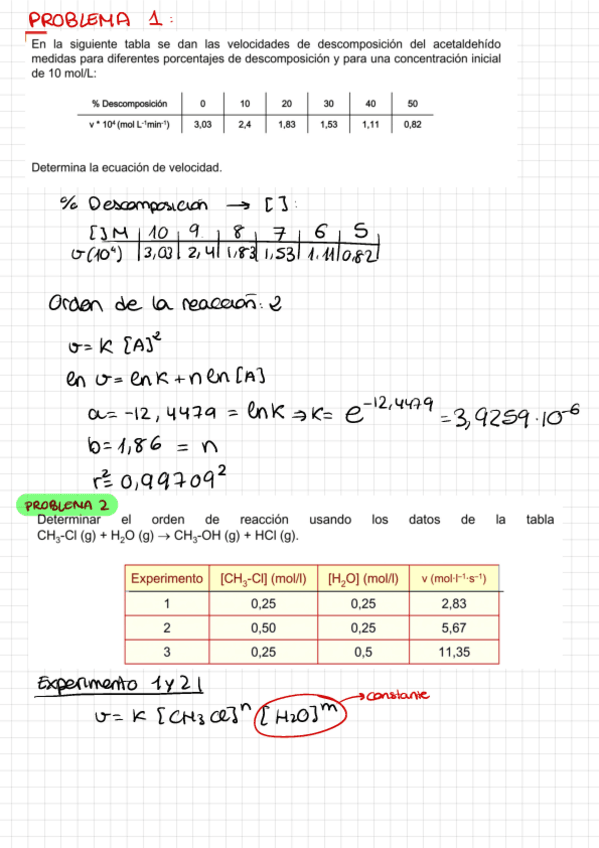 PROBLEMA 1:
En la siguiente tabla se dan las velocidades de descomposición del acetaldehído
medidas para diferentes porcentajes de descomposición y para una concentración inicial
de 10 mol/L:
% Descomposición 0 10 20 30 40 50
v * 10⁴ (mol L⁻¹min⁻¹) 3,03 2,4 1,83 1,53 1,11 0,82
Determina la ecuación de velocidad.
% Descomposición → [ ]:
[ ] M 10 9 8 7 6 5
v(10⁴) 3,03 2,4 1,83 1,53 1.11 0,82
Orden de la reacción: 2
v = K [A]²
ln v = ln K + n ln [A]
a = -12,4479 = ln K ⇒ K = e^-12,4479 = 3,9259·10⁻⁶
b = 1,86 = n
r² = 0,99709²
PROBLEMA 2
Determinar el orden de reacción usando los datos de la tabla
CH₃-Cl (g) + H₂O (g) → CH₃-OH (g) + HCl (g).
Experimento [CH₃-Cl] (mol/l) [H₂O] (mol/l) v (mol·l⁻¹·s⁻¹)
1 0,25 0,25 2,83
2 0,50 0,25 5,67
3 0,25 0,5 11,35
Experimento 1 y 2
v = K [CH3Cl]ⁿ [H2O]ᵐ → constante